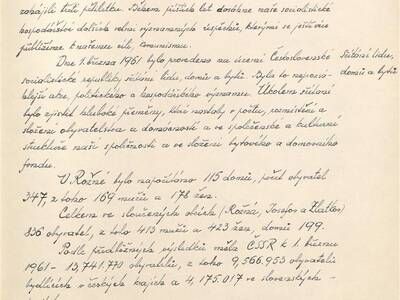 zahájili třetí pětiletku. Během příštích let dosáhne naše socialistické
hospodářství dalších velmi významných úspěchů, kterými se ještě více
přiblížíme k našemu cíli, komunismu.
Dne 1. března 1961 bylo provedeno na území Československé
socialistické republiky, sčítání lidu, domů a bytů. Byla to nejrozsá-
hlejší akce, politického a hospodářského významu. Úkolem sčítání
bylo zjistit hluboké přeměny, které nastaly v počtu, rozmístění a
složení obyvatelstva a domácností a ve společenské a kulturní
struktuře naší společnosti a ve složení bytového a domovního
fondu.
Sčítání lidu,
domů a bytů
V Rožné bylo napočítáno 115 domů, počet obyvatel
347, z toho 169 mužů a 178 žen.
Celkem ve sloučených obcích (Rožná, Josefov a Zlatkov)
836 obyvatel, z toho 413 mužů a 423 žen, domů 199.
Podle předběžných výsledků měla ČSSR k 1. březnu
1961 - 13,741.770 obyvatelů, z toho 9,566.953 obyvatelů
bydlících v českých krajích a 4,175.017 ve slovenských -